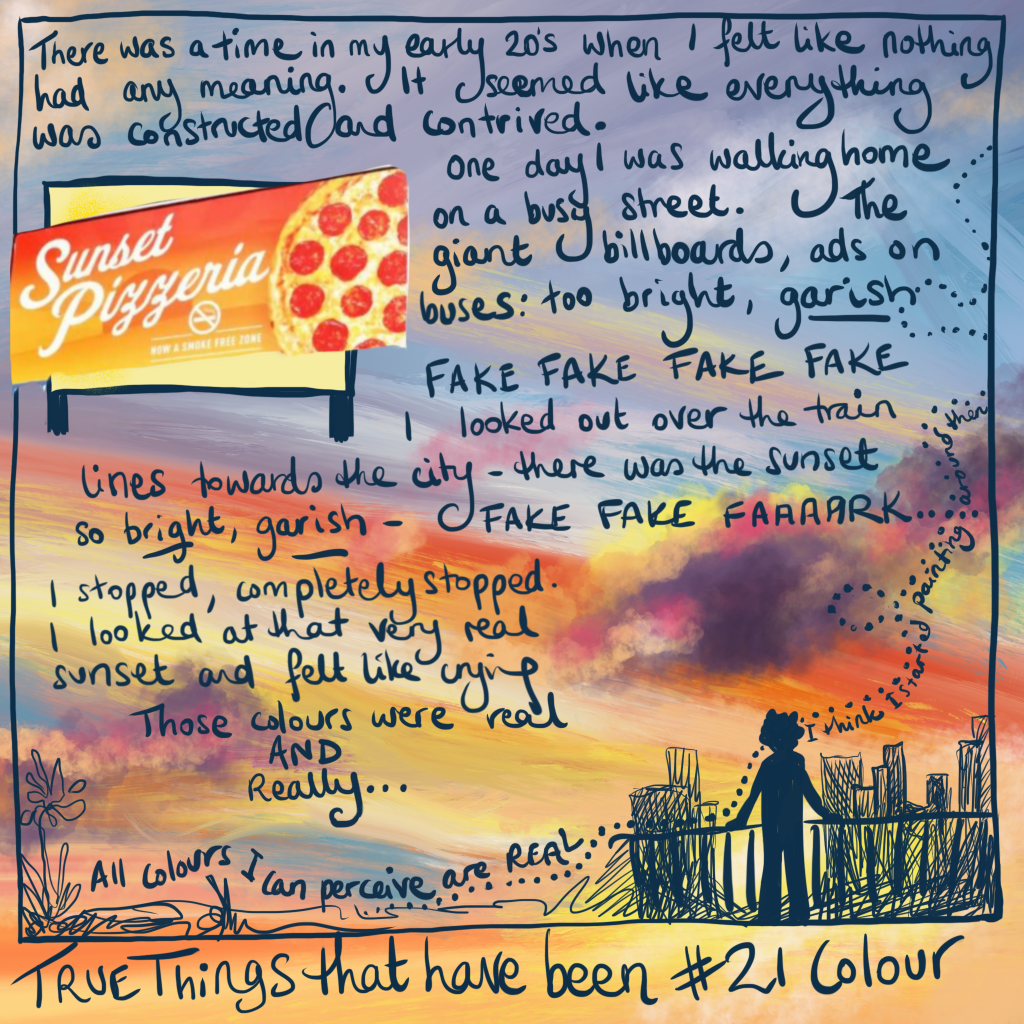 There was a time in my early 20's when I felt like nothing
had any meaning. It seemed like everything
was constructed and contrived.
One day I was walking home
on a busy street. The
giant billboards, ads on
buses: too bright, garish
Sunset
Pizzeria
NOW A SMOKE FREE ZONE
FAKE FAKE FAKE FAKE
I looked out over the train
lines towards the city - there was the sunset
so bright, garish - FAKE FAKE FAAAARK
I stopped, completely stopped.
I looked at that very real
sunset and felt like crying
Those colours were real
AND
Really...
All colours I can perceive are REAL
I think I started painting around then
TRUE Things that have been #21 Colour